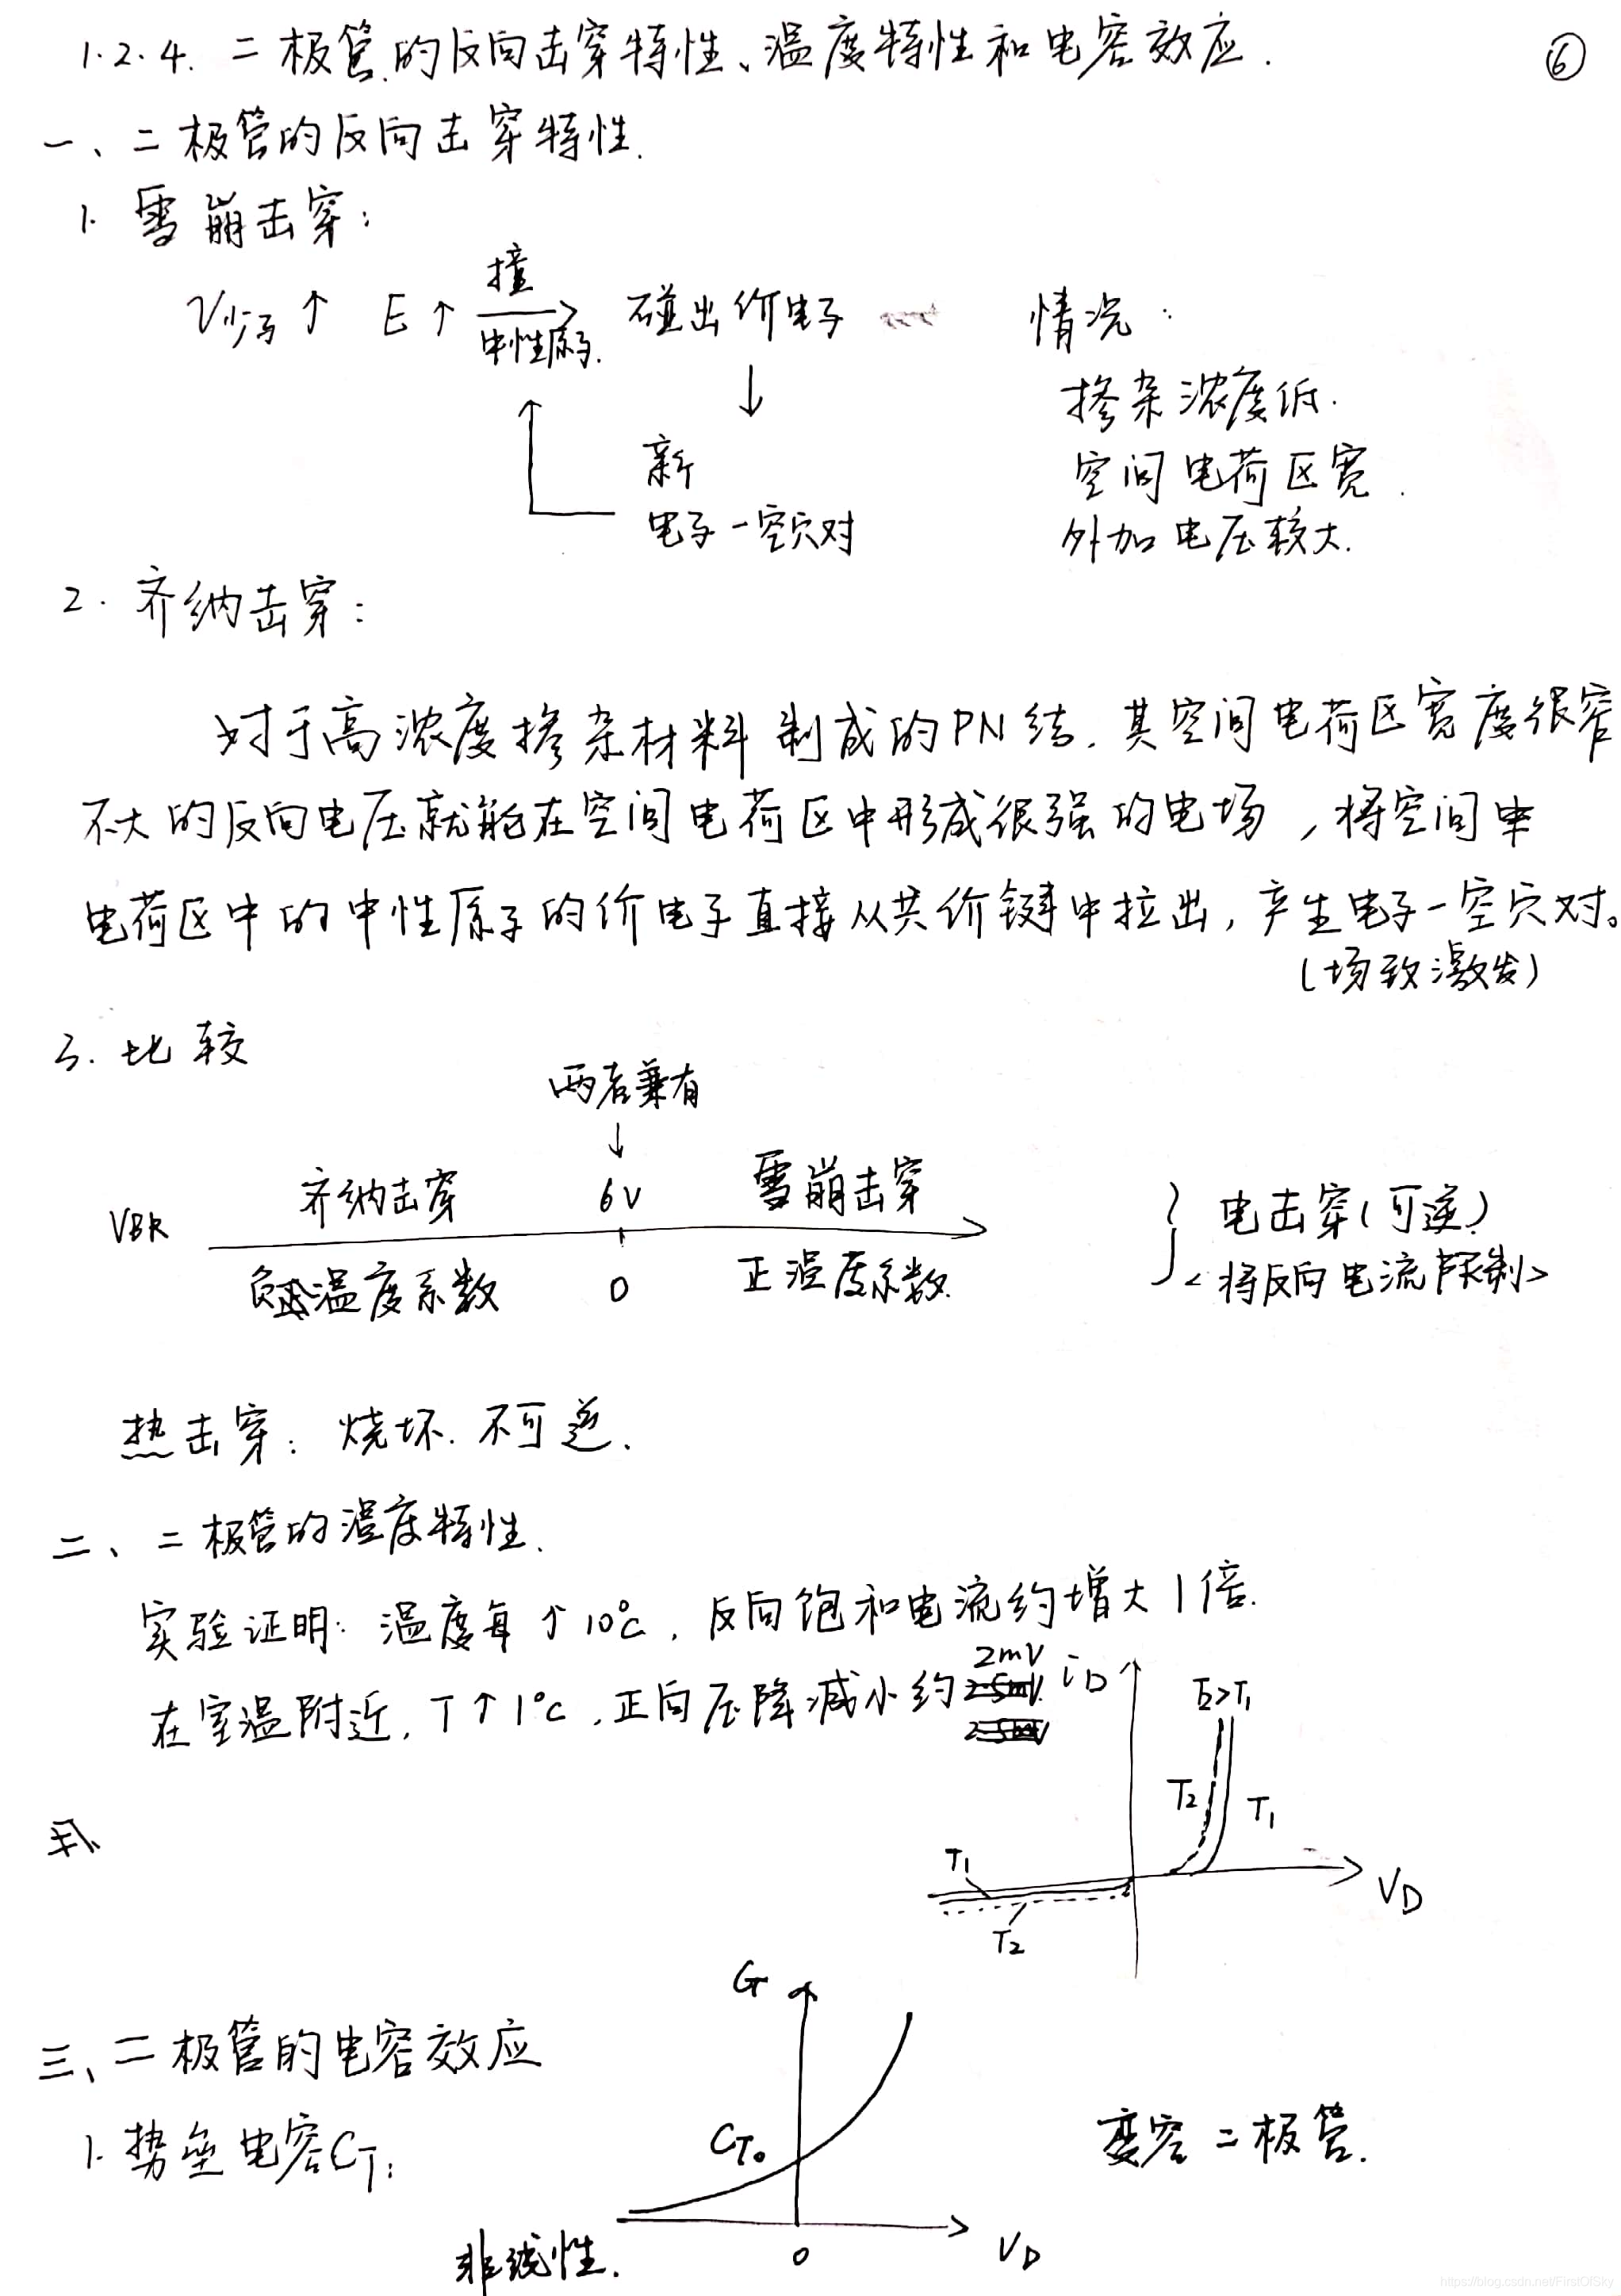 1.2.4. 二极管的反向击穿特性、温度特性和电容效应.
⑥
一、二极管的反向击穿特性.
1. 雪崩击穿：
V少子↑ E↑ 撞 中性原子. → 碰出价电子
↓
新
电子-空穴对
情况：
掺杂浓度低.
空间电荷区宽.
外加电压较大.
2. 齐纳击穿：
对于高浓度掺杂材料制成的PN结, 其空间电荷区宽度很窄
不大的反向电压就能在空间电荷区中形成很强的电场，将空间
电荷区中的中性原子的价电子直接从共价键中拉出, 产生电子-空穴对。
(场致激发)
3. 比较
两者兼有
↓
VBR 齐纳击穿 6V 雪崩击穿
负温度系数 0 正温度系数.
} 电击穿(可逆)
<将反向电流限制>
热击穿：烧坏. 不可逆.
二、二极管的温度特性.
实验证明: 温度每↑10℃, 反向饱和电流约增大1倍.
在室温附近, T↑1℃, 正向压降减小约 2mV
iD
T2>T1
T2
T1
T1
T2
VD
三、二极管的电容效应
1. 势垒电容CT:
CT
CT0
0
VD
非线性.
变容二极管.
https://blog.csdn.net/FirstOfSky